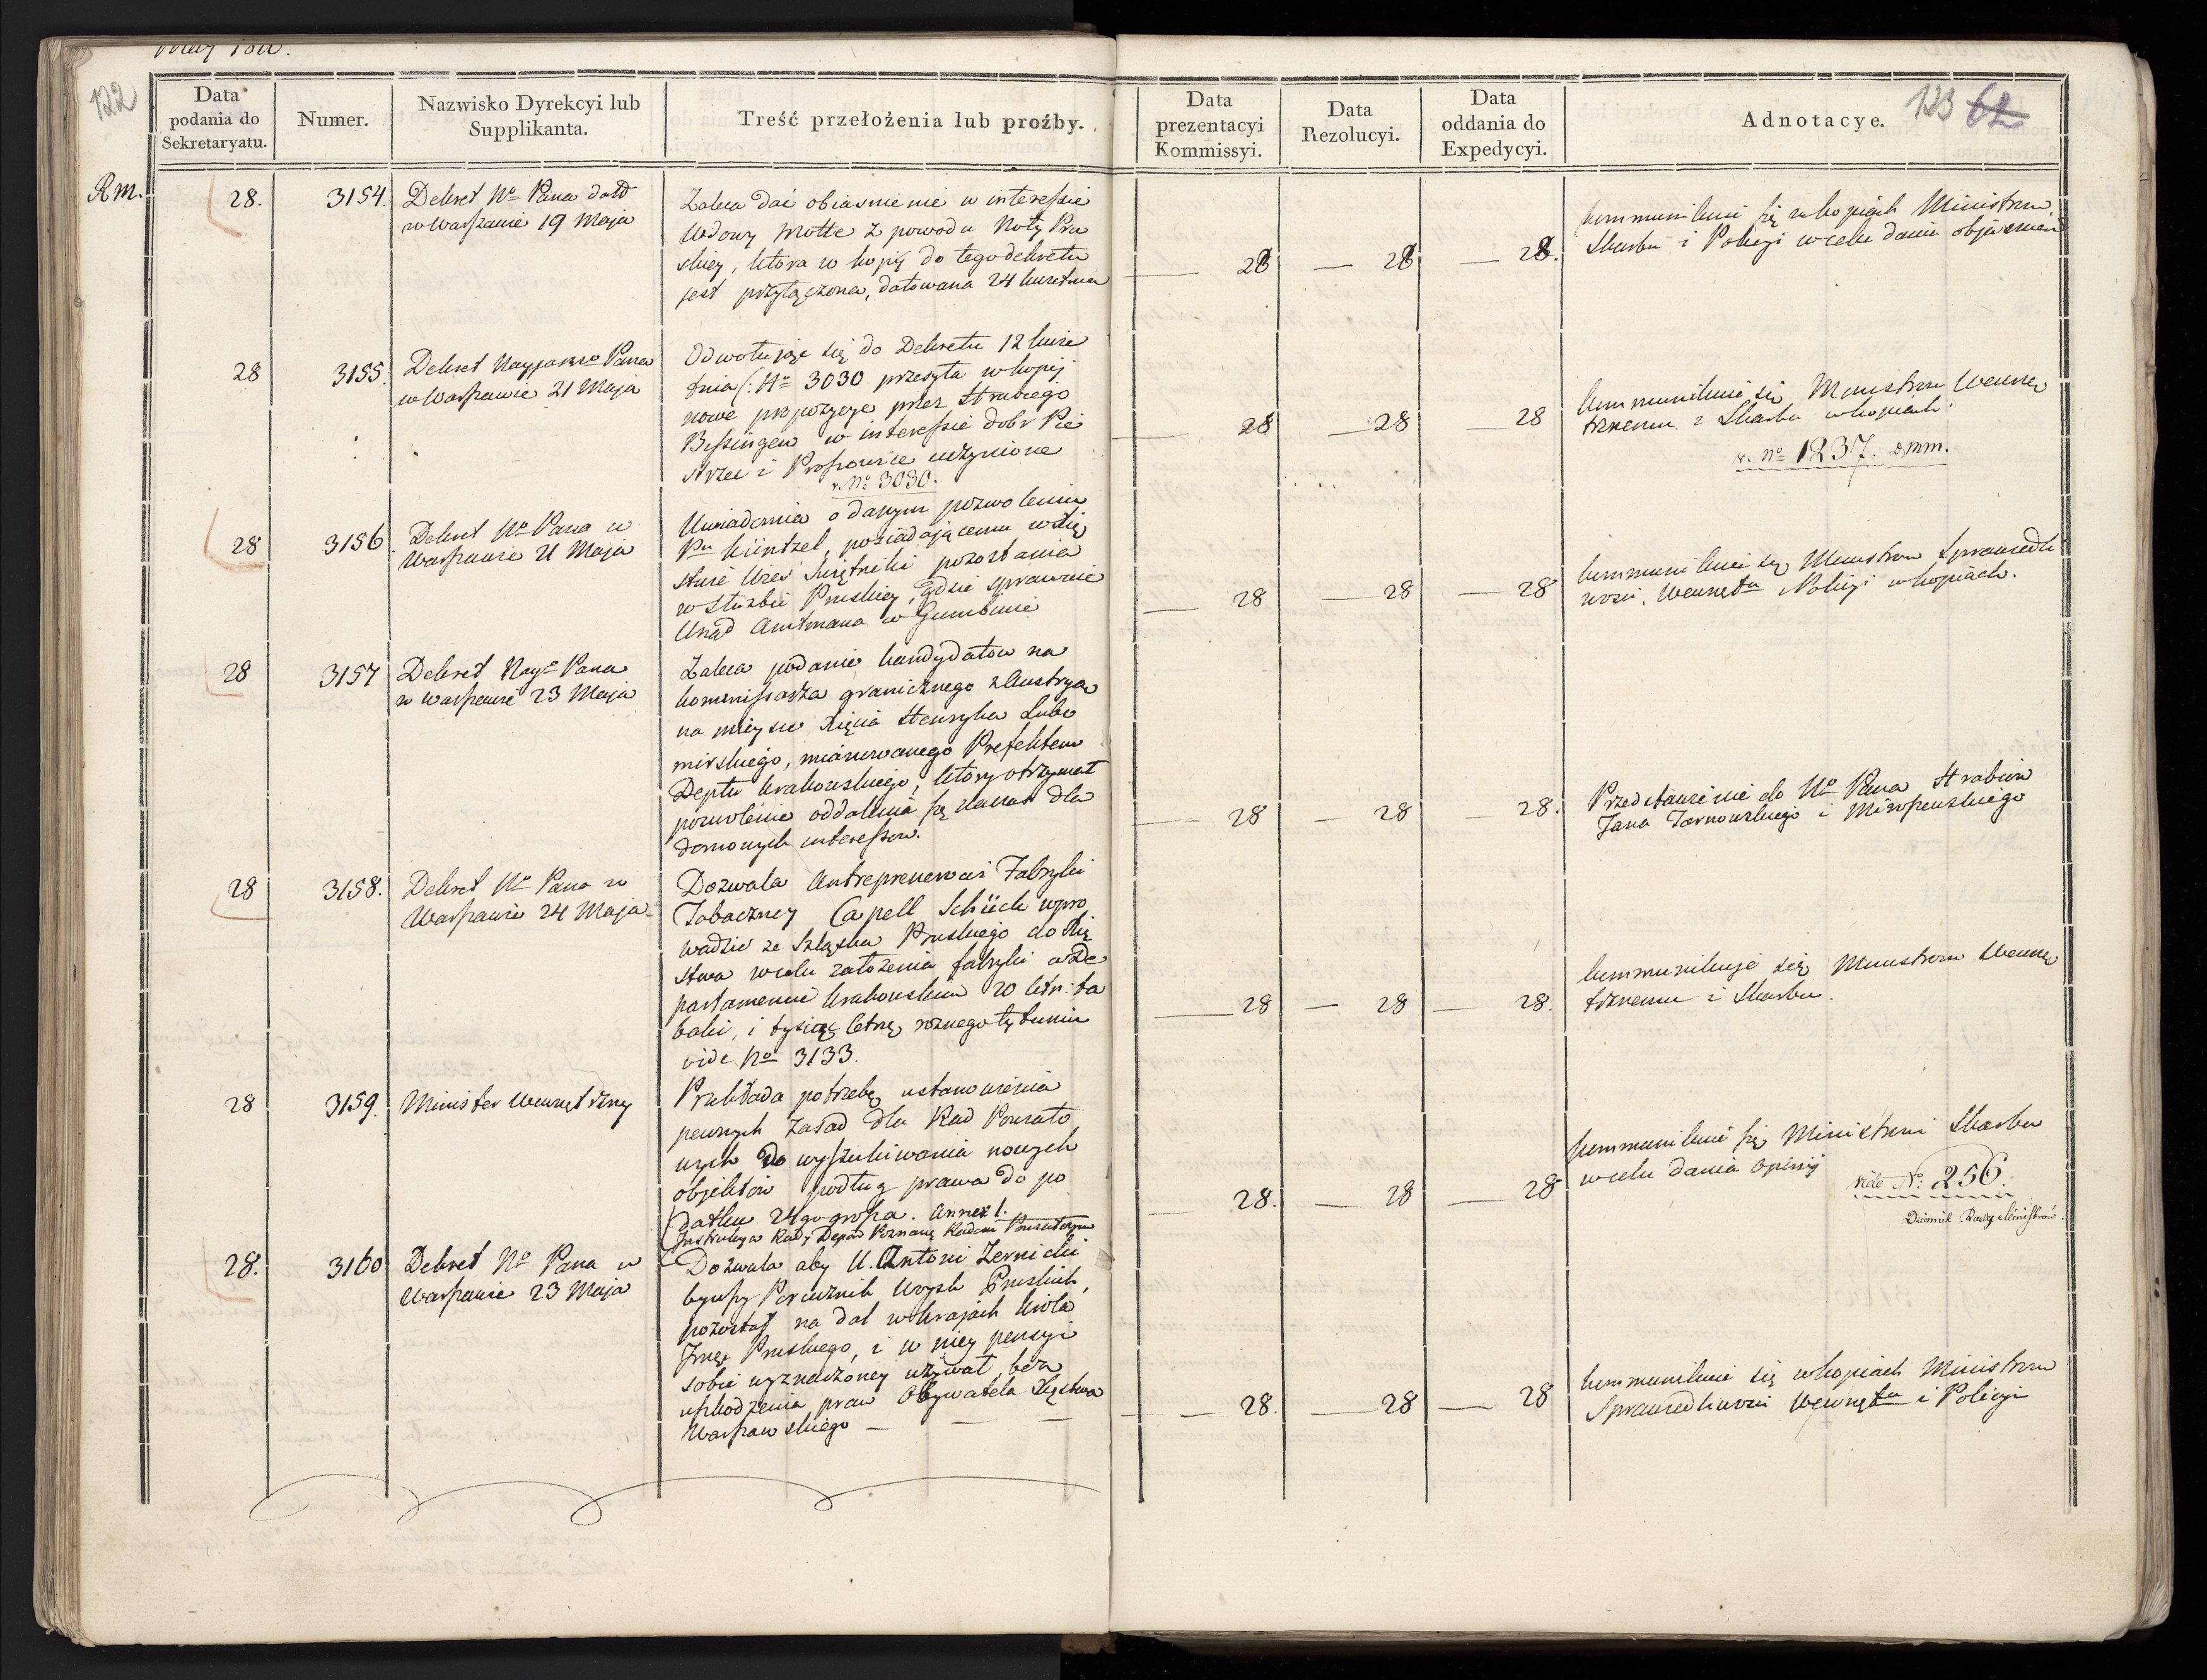 May 1811.
122
Data
podania do
Sekretaryatu.
Numer.
Nazwisko Dyrekcyi lub
Supplikanta.
Treść przełożenia lub proźby.
Data
prezentacyi
Kommissyi.
Data
Rezolucyi.
Data
oddania do
Expedycyi.
Adnotacye.
123 62
Rm.
28.
3154.
Dekret No Pana datd
w Warszawie 19 Maja
Zaleca dać obiasnienie w interessie
Wdowy Motte z powodu Noty Pru
skiey, ktora w kopij do tego dekretu
jest przyłączona, datowana 24 kwietnia
28 — 28 — 28.
kommunikuie się w kopiach Ministrom
Skarbu i Policyi w celu dania objasnień
28
3155.
Dekret Nayjasno Pana
w Warszawie 21 Maja
Odwołując się do Dekretu 12 kwie
tnia (: No 3030 przesyła w kopij
nowe propozycye przez Hrabiego
Bissingen w interessie dobr Pie
strzec i Prossowice uczynione
v. No 3030.
28 — 28 — 28
kommunikuie się Ministrom Wewnę
trznemu i Skarbu w kopiach.
v. No 1237. d mm.
28
3156.
Dekret No Pana w
Warszawie 21 Maja
Uwiadomia o danym pozwoleniu
Pu Küntzel, posiadającemu w Xię
stwie Wieś Swiętniki pozostania
w służbie Pruskiey, gdzie sprawuie
Urząd Amtmana w Gumbinie
28 — 28 — 28
kommunikuie się Ministrom Sprawiedli
wości, Wewnętu Policyi w kopiach.
28
3157
Dekret Naye Pana
w Warszawie 23 Maja
Zaleca podanie kandydatow na
kommissarza granicznego z Austryą
na mieysce Xięcia Henryka Lubo
mirskiego, mianowanego Prefektem
Deptu krakowskiego, ktory otrzymał
pozwolenie oddalenia się na czas dla
domowych interessow.
28 — 28 — 28.
Przedstawienie do No Pana Hrabiów
Jana Tarnowskiego i Mieroszewskiego
28
3158.
Dekret No Pana w
Warszawie 24 Maja
Dozwala Antreprenerowi Fabryki
Tabaczney Capell Schück wpro
wadzić ze Szląska Pruskiego do Xię
stwa w celu założenia fabryki w De
partamencie krakowskim 20 cetn: ta
baki, i tysiąc cetn. roznego tytuniu
vide No 3133.
28 — 28 — 28.
kommunikuje się Ministrom Wewnę
trznemu i Skarbu.
28
3159.
Minister Wewnętrzny
Przekłada potrzebę ustanowienia
pewnych zasad dla Rad Powiato
wych do wyszukiwania nowych
objektów podług prawa do po
datku 24go grosza. Annex 1.
Instrukcya Rady Depar Poznang Radom Powiatowym
28. — 28 — 28
kommunikuie się Ministrowi Skarbu
w celu dania opinij
vide No: 256.
Dziennik Rady Ministrów.
28.
3160
Dekret No Pana w
Warszawie 23 Maja
Dozwala aby U. Antoni Zernicki
bywszy Porucznik Woysk Pruskich,
pozostał na dal w krajach króla
Jmci Pruskiego, i w niey pensyi
sobie wyznaczoney używał, bez
uszkodzenia praw Obywatela Xięstwa
Warszawskiego —
28. — 28 — 28
kommunikuie się w kopiach Ministrom
Sprawiedliwości Wewnętu i Policyi